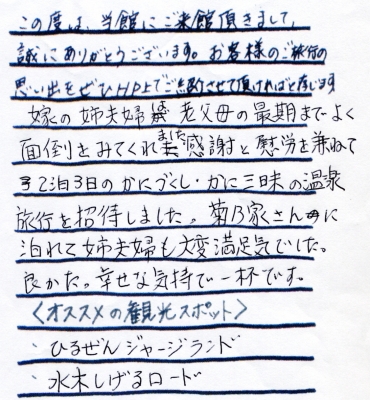 この度は、当館にご来館頂きまして、
誠にありがとうございます。お客様のご旅行の
思い出をぜひHP上でご紹介させて頂ければと存じます
嫁の姉夫婦 老父母の最期までよく
面倒をみてくれました 感謝と慰労を兼ねて
2泊3日のかにづくし・かに三昧の温泉
旅行を招待しました。菊乃家さんに
泊れて姉夫婦も大変満足気でした。
良かた。幸せな気持で一杯です。
〈オススメの観光スポット〉
・ひるぜんジャージランド
・水木しげるロード